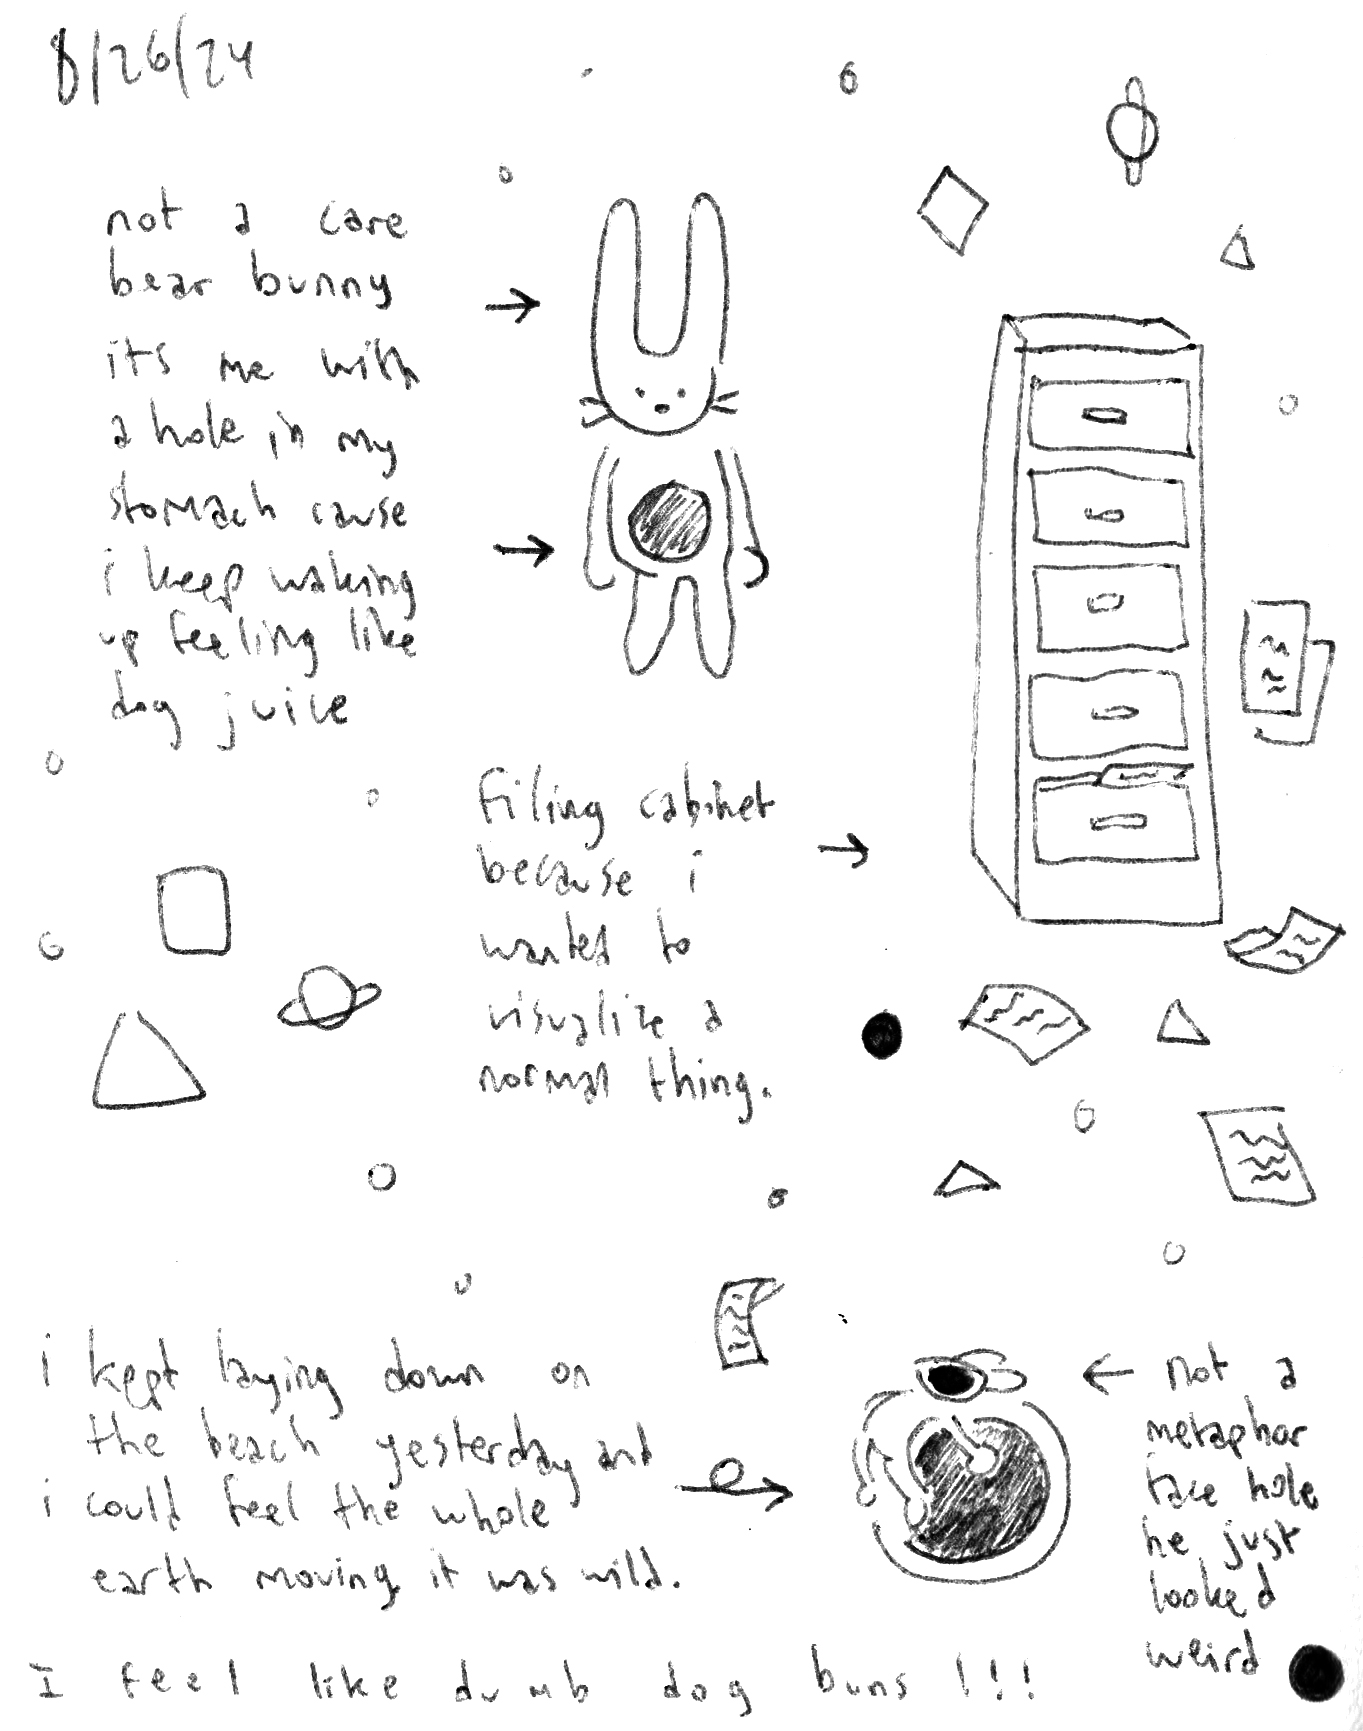 8/26/24
not a care
bear bunny
its me with
a hole in my
stomach cause
i keep waking
up feeling like
dog juice
filing cabinet
because i
wanted to
visualize a
normal thing.
i kept laying down on
the beach yesterday and
i could feel the whole
earth moving it was wild.
not a
metaphor
face hole
he just
looked
weird
I feel like dumb dog buns!!!